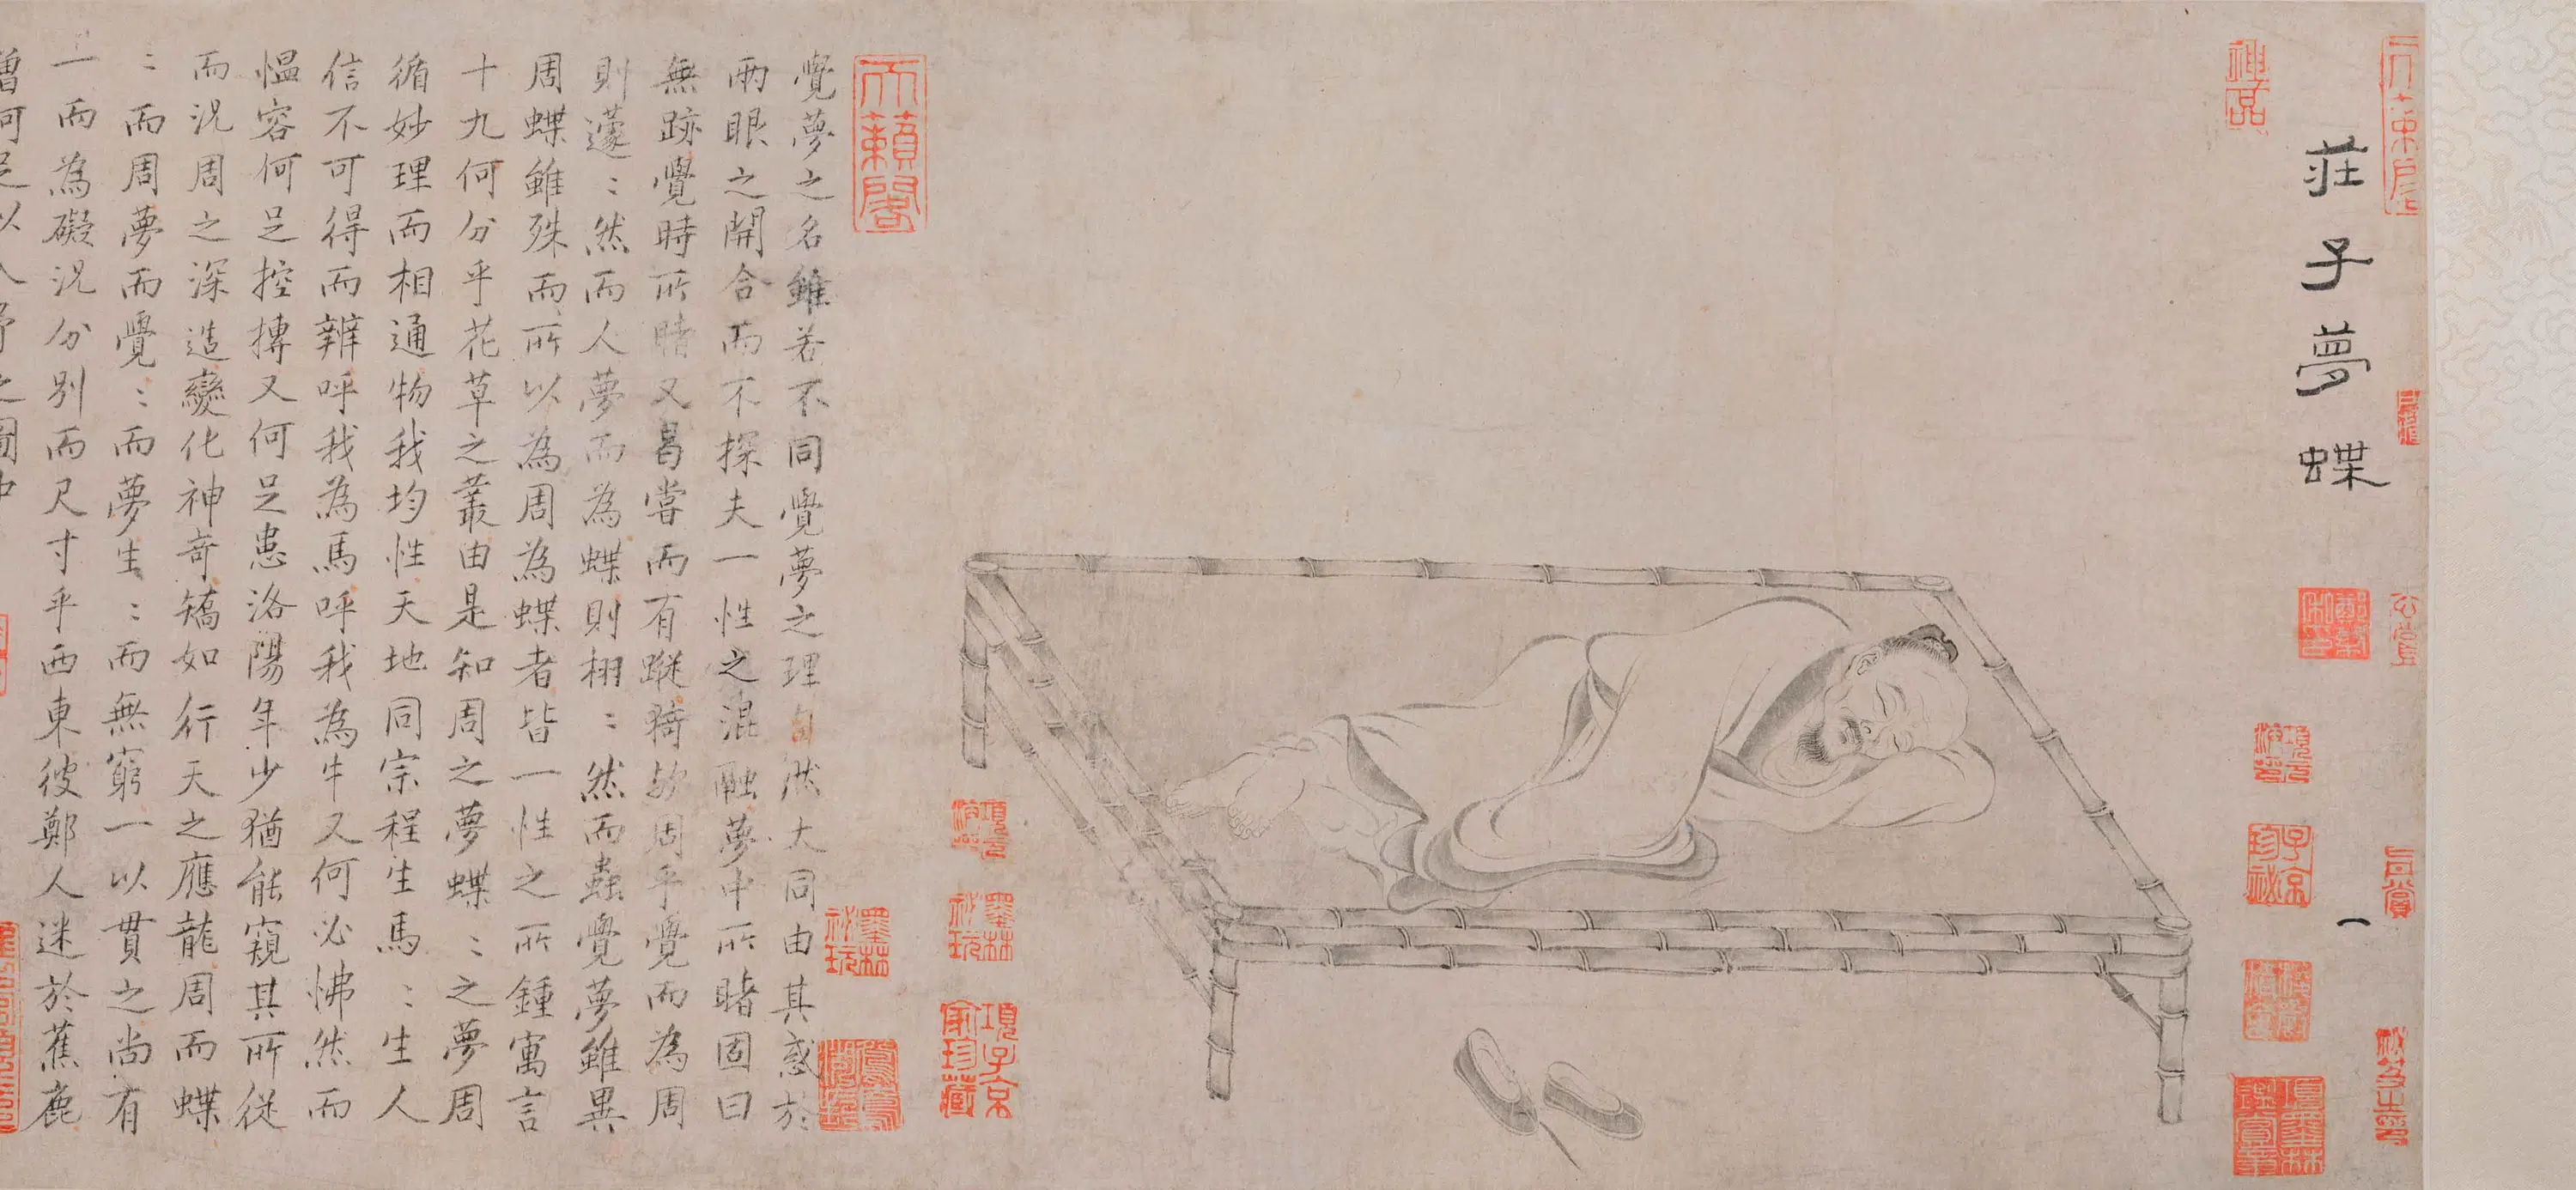 莊子夢蝶
神品
項元汴印
子京珍祕
項墨林鑑賞章
項元汴印
墨林祕玩
項子京家珍藏
天籟閣
墨林祕玩
覺夢之名雖若不同覺夢之理自然大同由其惑於
兩眼之開合而不探夫一性之混融夢中所睹固曰
無跡覺時所睹又曷嘗而有蹤猗歟周乎覺而為周
則蘧〻然而人夢而為蝶則栩〻然而蟲覺夢雖異
周蝶雖殊而所以為周為蝶者皆一性之所鍾寓言
十九何分乎花草之叢由是知周之夢蝶〻之夢周
循妙理而相通物我均性天地同宗程生馬〻生人
信不可得而辨呼我為馬呼我為牛又何必怫然而
慍容何足控摶又何足患洛陽年少猶能窺其所從
而況周之深造變化神奇矯如行天之應龍周而蝶
〻而周夢而覺〻而夢生〻而無窮一以貫之尚有
一而為礙況分別而尺寸乎西東彼鄭人迷於蕉鹿